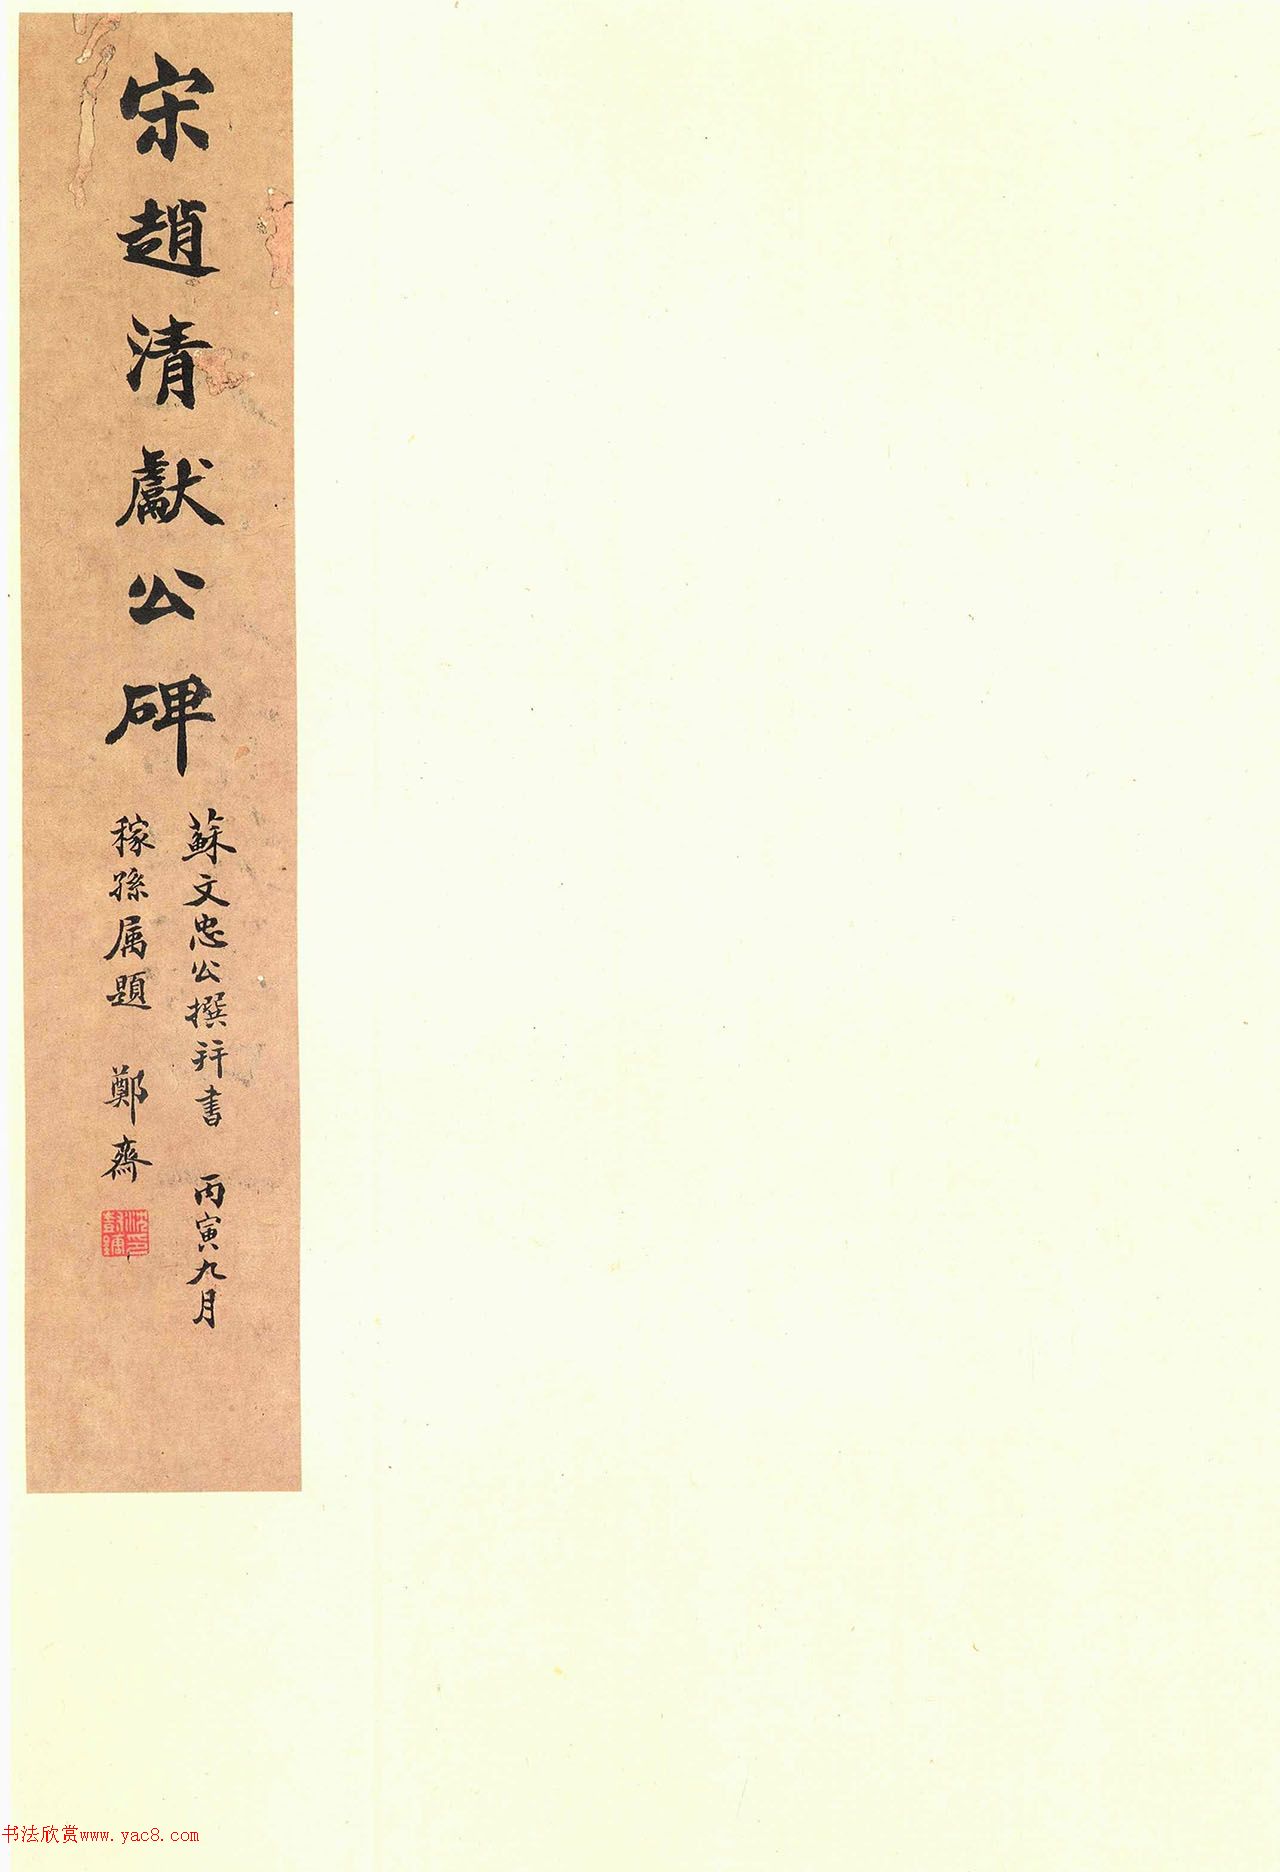 宋趙清獻公碑
蘇文忠公撰并書 丙寅九月
稼孫属題 鄭齋
书法欣赏www.yac8.com